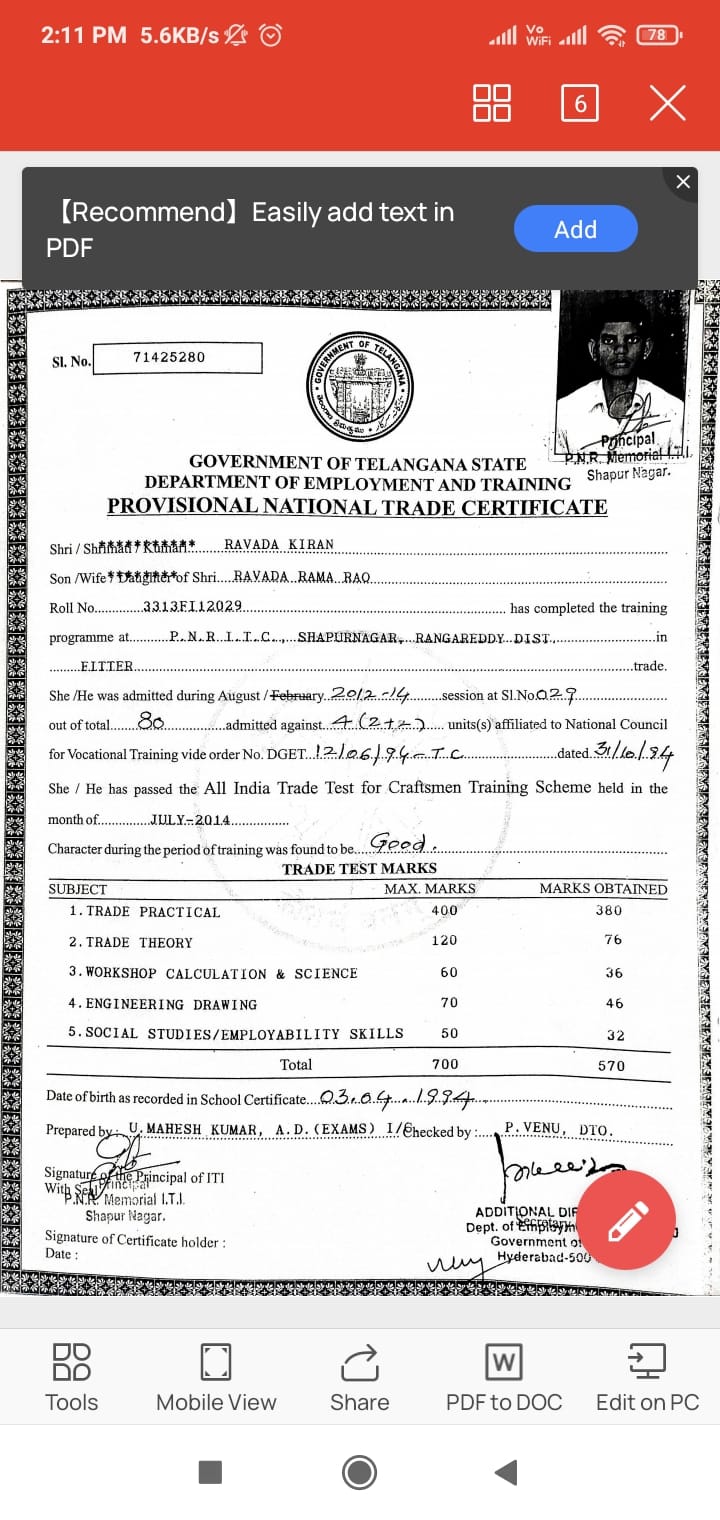 2:11 PM 5.6KB/s Vo WiFi 78
6
【Recommend】Easily add text in PDF
Add
Sl. No. 71425280
GOVERNMENT OF TELANGANA
Principal
P.N.R. Memorial I.T.I.
Shapur Nagar.
GOVERNMENT OF TELANGANA STATE
DEPARTMENT OF EMPLOYMENT AND TRAINING
PROVISIONAL NATIONAL TRADE CERTIFICATE
Shri / Shrimati / Kumari RAVADA KIRAN
Son /Wife Daughter of Shri....RAVADA RAMA RAO
Roll No. 3313FI12029 has completed the training
programme at P.N.R I.T.C., SHAPURNAGAR, RANGAREDDY DIST. in
FITTER trade.
She /He was admitted during August / February 2012-14 session at Sl.No. 029
out of total 80 admitted against 4 (2+2) units(s) affiliated to National Council
for Vocational Training vide order No. DGET. 12/06/94-TC dated 31/10/94
She / He has passed the All India Trade Test for Craftsmen Training Scheme held in the
month of JULY-2014
Character during the period of training was found to be Good.
TRADE TEST MARKS
SUBJECT MAX. MARKS MARKS OBTAINED
1. TRADE PRACTICAL 400 380
2. TRADE THEORY 120 76
3. WORKSHOP CALCULATION & SCIENCE 60 36
4. ENGINEERING DRAWING 70 46
5. SOCIAL STUDIES/EMPLOYABILITY SKILLS 50 32
Total 700 570
Date of birth as recorded in School Certificate 03.04.1994
Prepared by: U. MAHESH KUMAR, A.D.(EXAMS) I/ Checked by : P. VENU, DTO.
Signature of the Principal of ITI
With Seal Principal
P.N.R. Memorial I.T.I.
Shapur Nagar.
ADDITIONAL DIR
Dept. of Employm
Secretary
Government of
Hyderabad-500
Signature of Certificate holder :
Date :
Tools Mobile View Share PDF to DOC Edit on PC